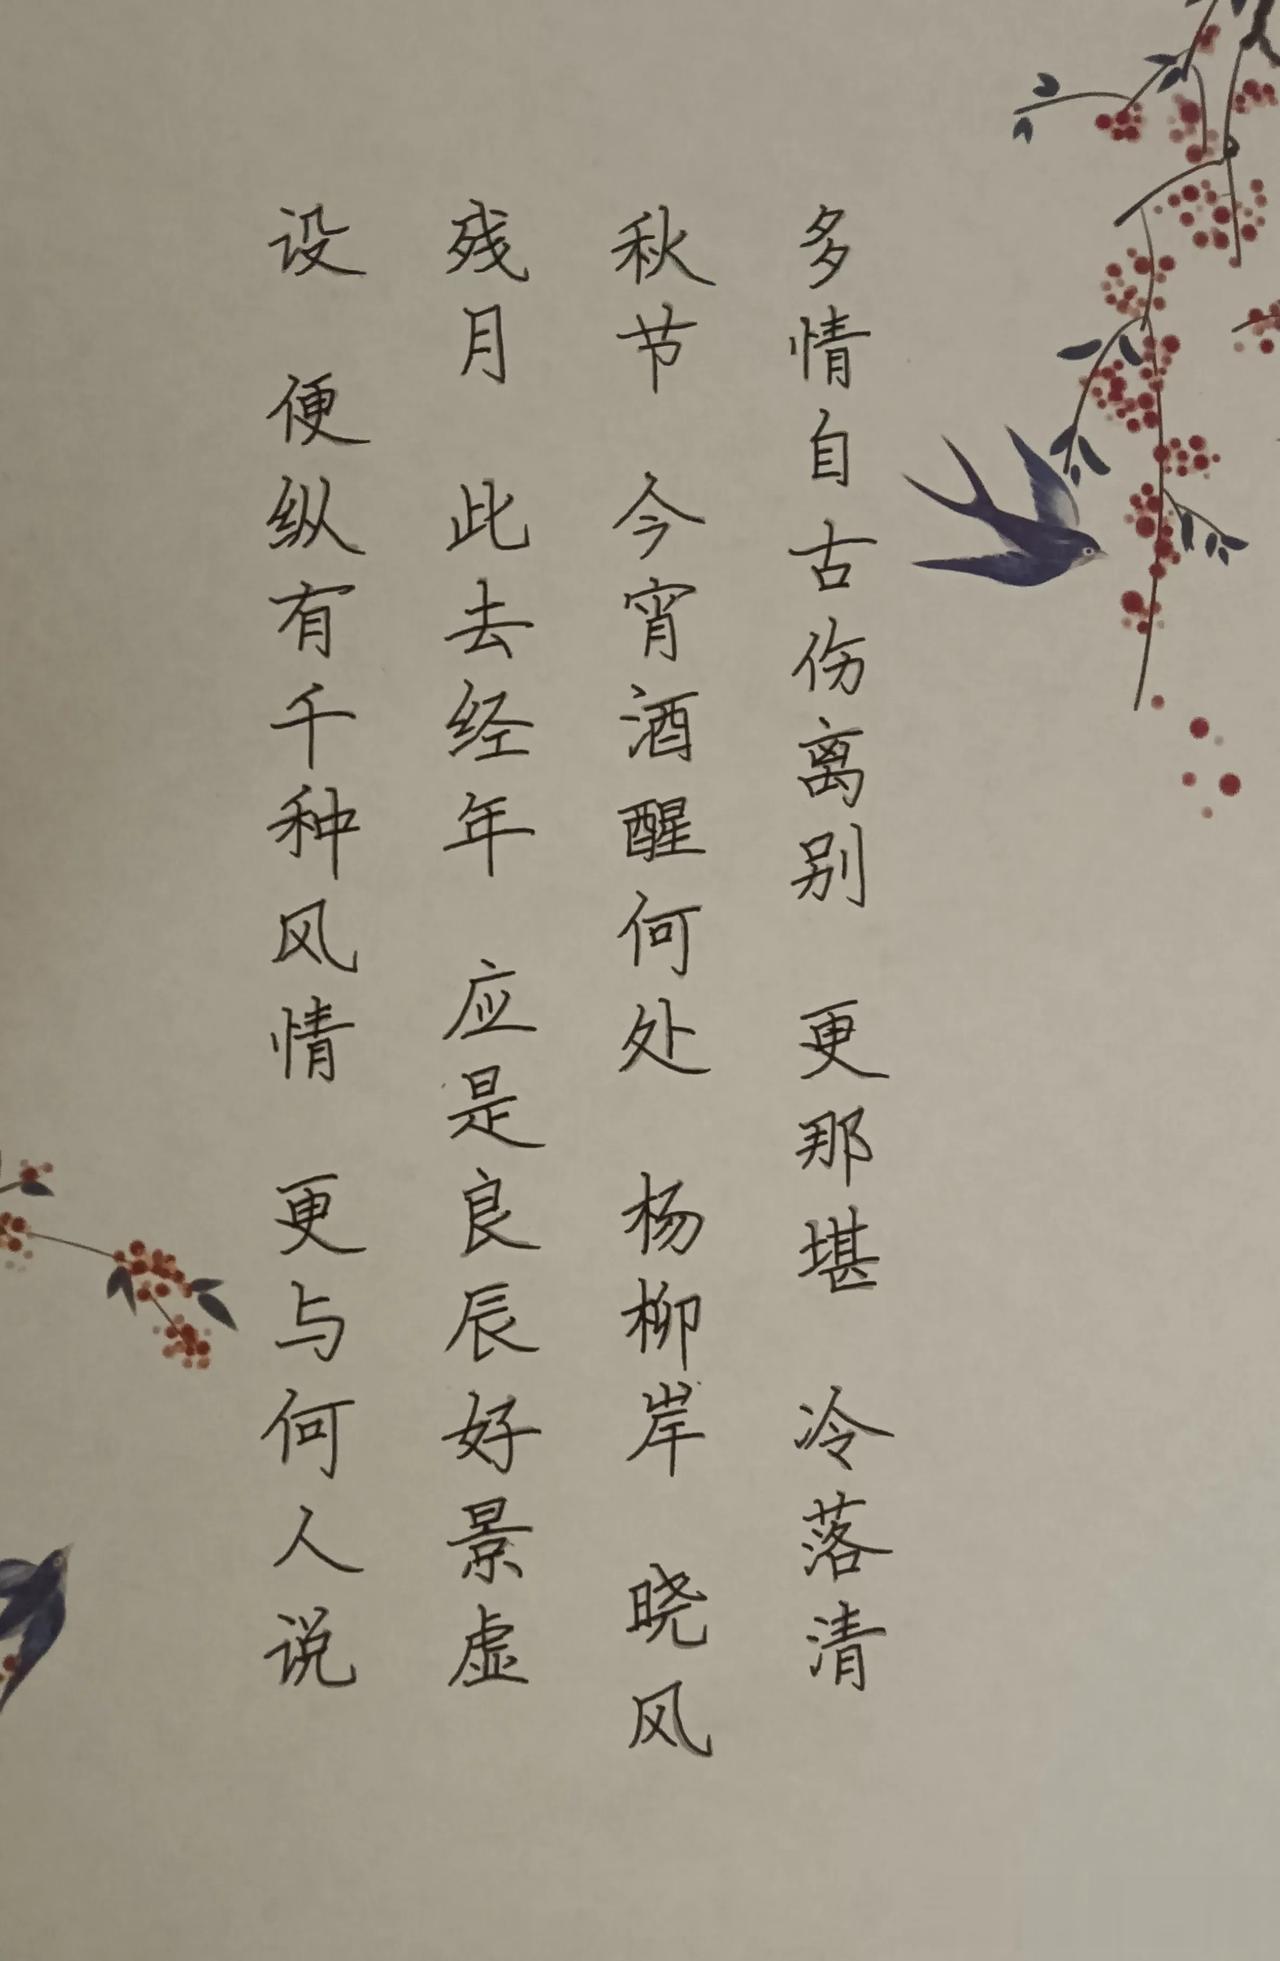 多情自古伤离别 更那堪 冷落清
秋节 今宵酒醒何处 杨柳岸 晓风
残月 此去经年 应是良辰好景虚
设 便纵有千种风情 更与何人说